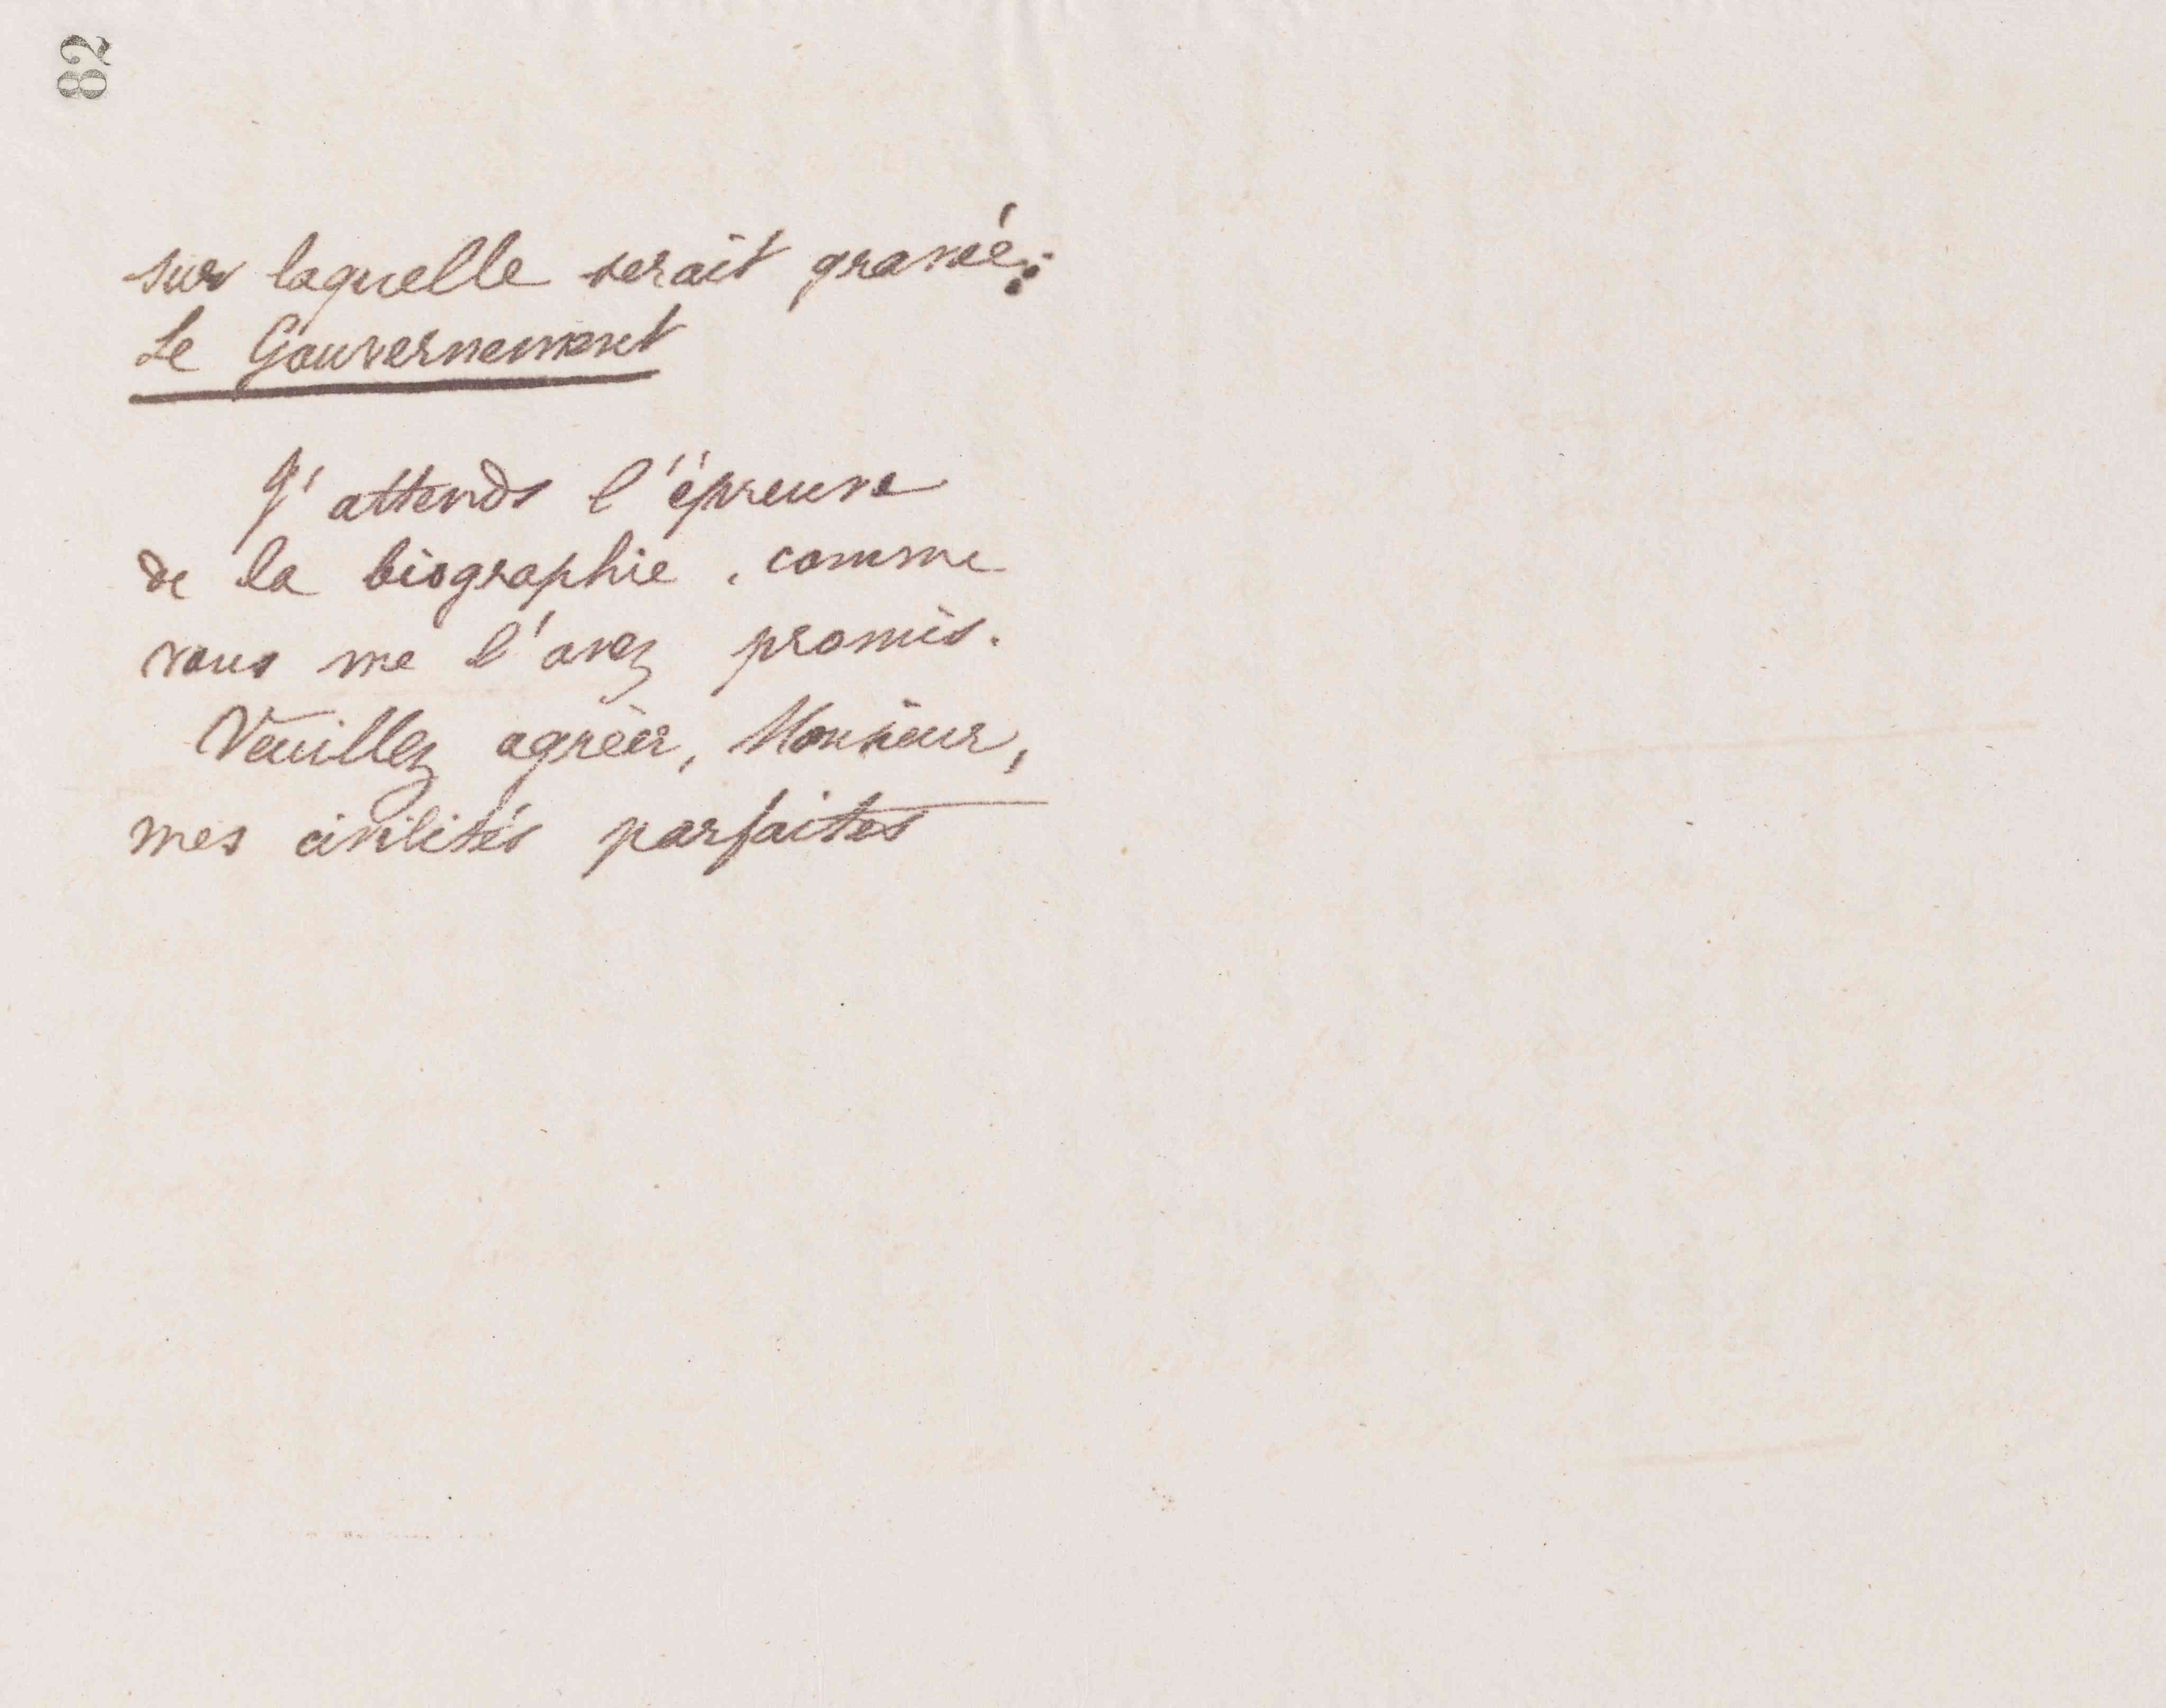 82
sur laquelle serait gravé :
Le Gouvernement
J'attends l'épreuve
de la biographie, comme
vous me l'avez promis.
Veuillez agréer, Monsieur,
mes civilités parfaites